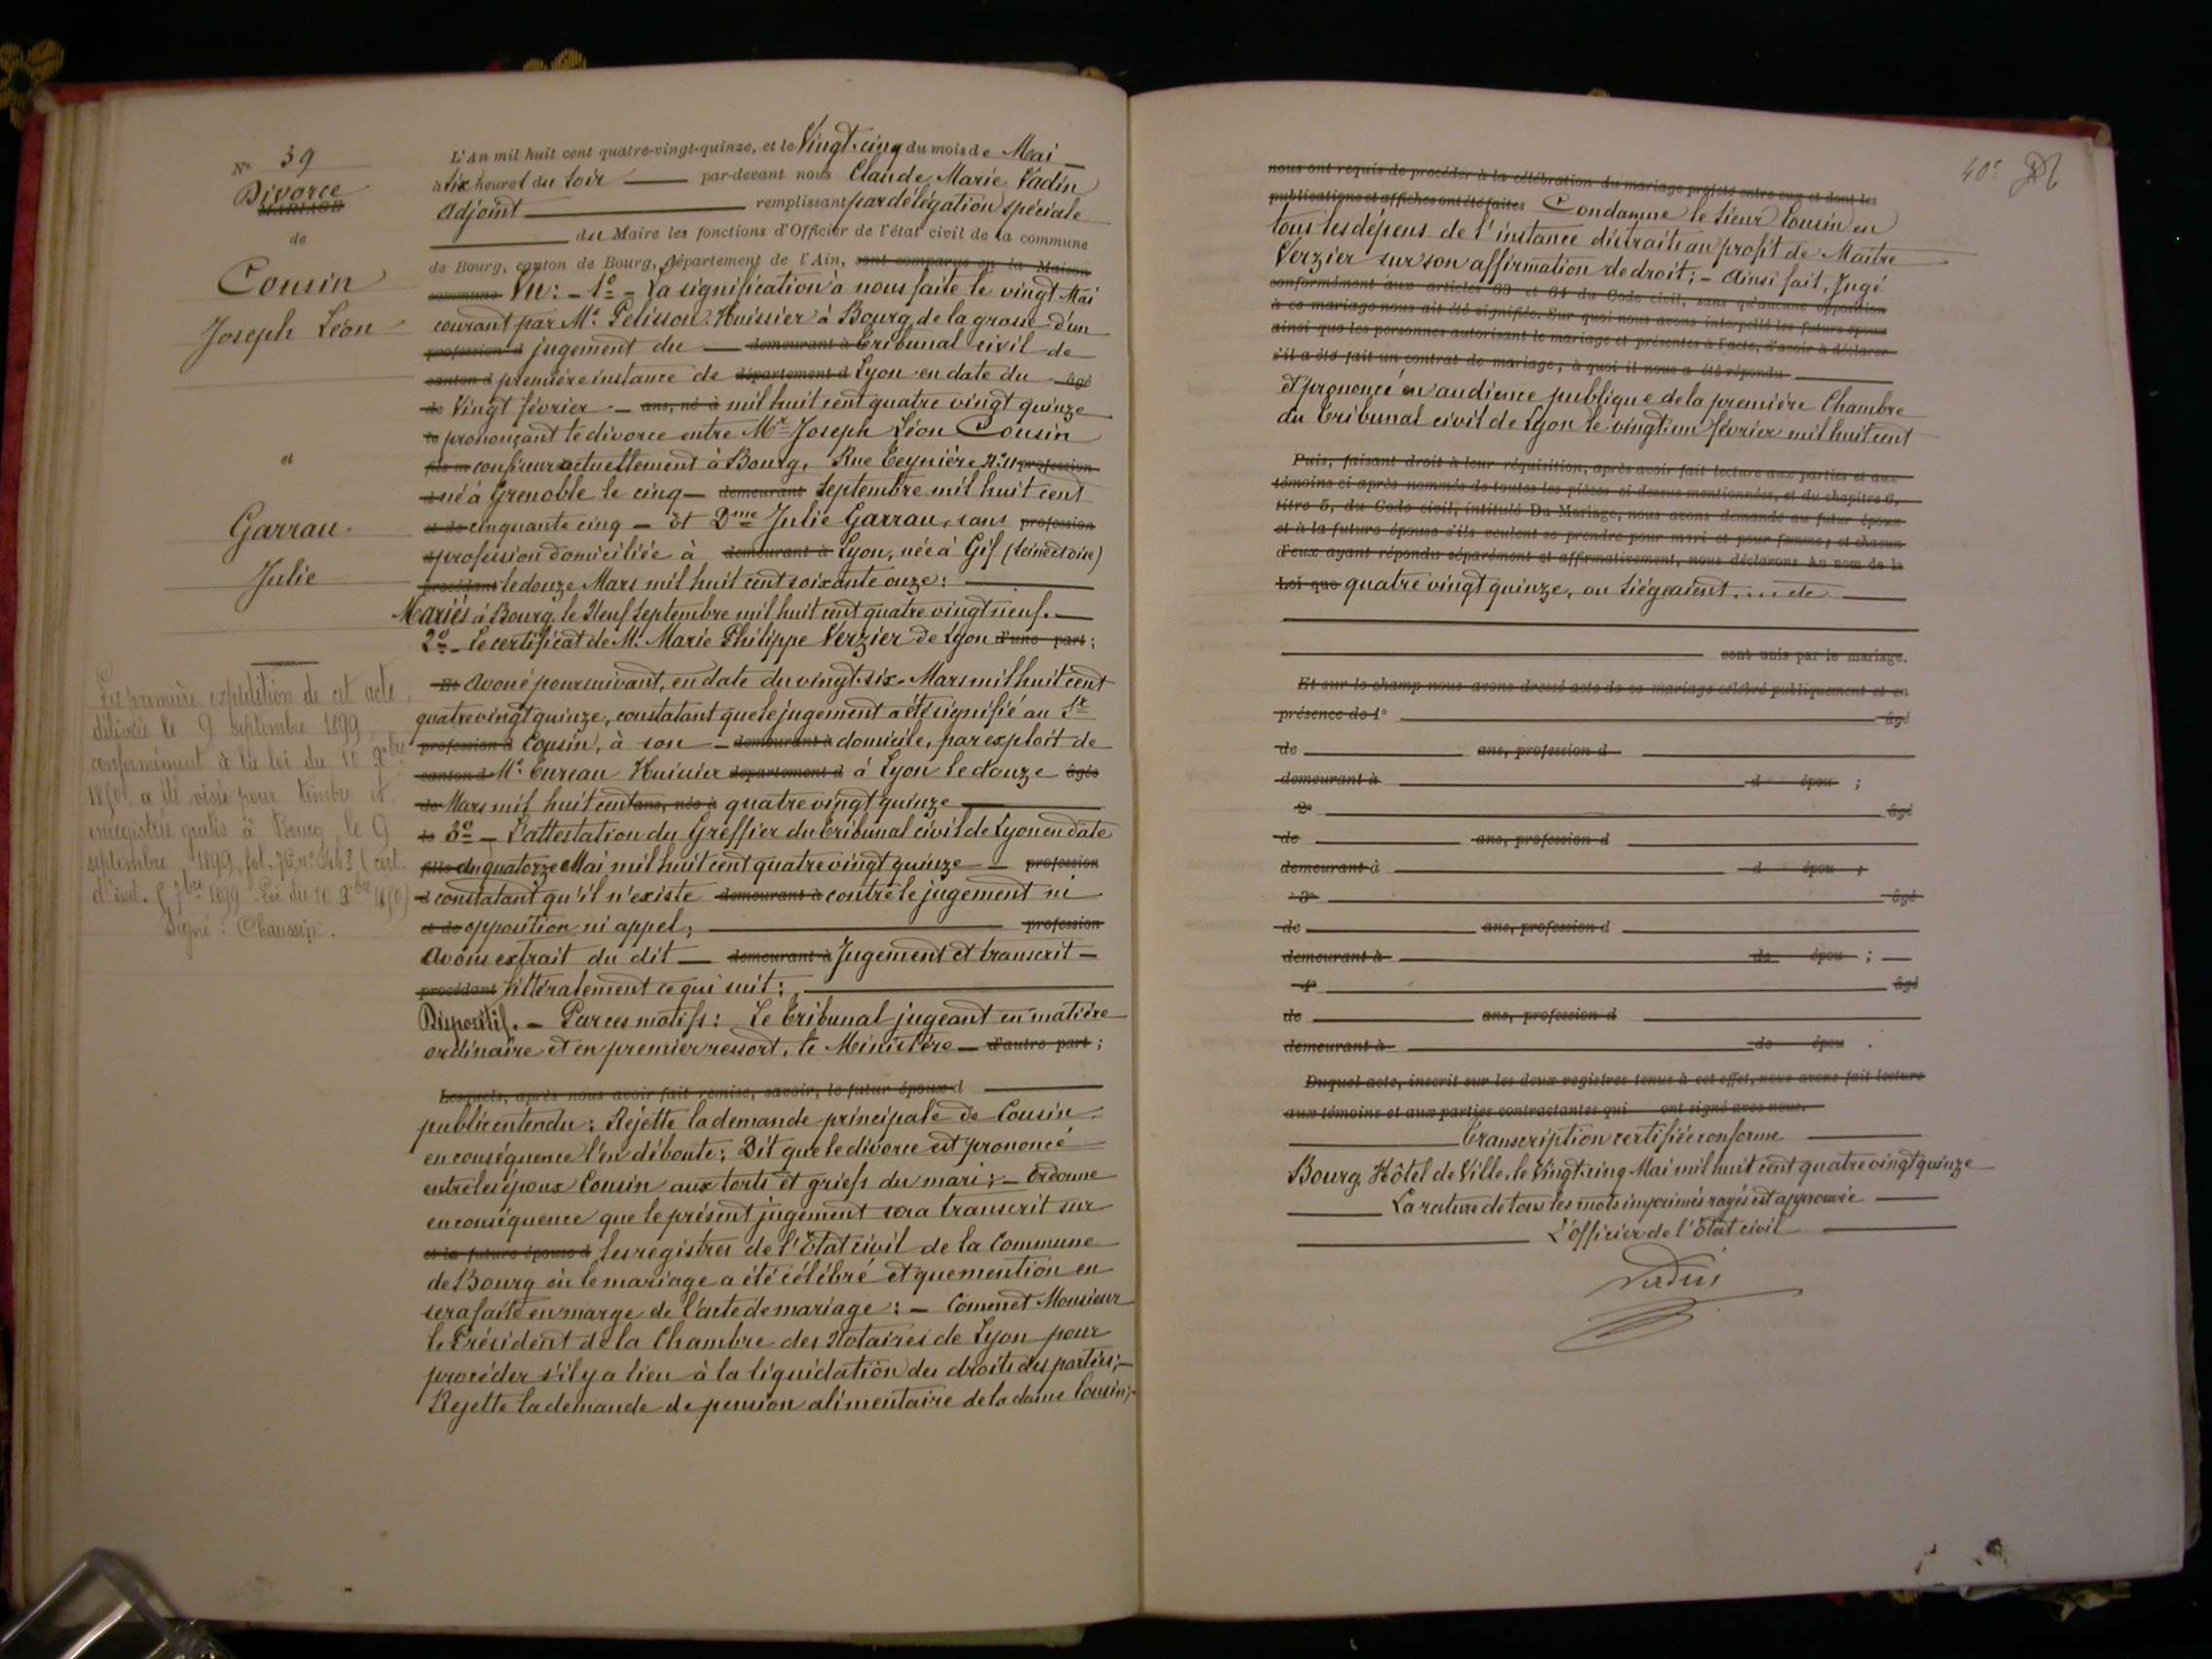 N° 39
Divorce
MARIAGE
de
Cousin
Joseph Léon
et
Garrau
Julie
La première expédition de cet acte,
délivrée le 9 septembre 1899,
conformément à la loi du 10 Xbre
1850, a été visée pour timbre et
enregistrée gratis à Bourg, le 9
septembre 1899, fol. 76, n° 443 (cert.
d'ind. 7bre 1899 Loi du 10 Xbre 1850)
Signé : Chaussin.
L'An mil huit cent quatre-vingt-quinze, et le Vingt-cinq du mois de Mai
à six heures du soir par-devant nous Claude Marie Vadin
Adjoint remplissant par délégation spéciale
du Maire les fonctions d'Officier de l'état civil de la commune
de Bourg, canton de Bourg, département de l'Ain, sont comparus en la Maison
commune Vu : - 1° - La signification à nous faite le vingt Mai
courant par Me Pelisson Huissier à Bourg, de la grosse d'un
profession d jugement du demeurant à Tribunal civil de
canton d première instance de département d Lyon en date du âgé
de Vingt février ans, né à mil huit cent quatre vingt quinze
le prononçant le divorce entre Mr Joseph Léon Cousin
fils m confiseur actuellement à Bourg, Rue Teynière N° 11 profession
d né à Grenoble le cinq demeurant Septembre mil huit cent
et de cinquante cinq - Et Dme Julie Garrau, sans profession
d profession domiciliée à demeurant à Lyon, née à Gif (Seine et Oise)
procédant le douze Mars mil huit cent soixante onze ;
Mariés à Bourg, le Neuf Septembre mil huit cent quatre vingt neuf.
2° - Le certificat de Me Marie Philippe Verzier de Lyon d'une part ;
Et Avoué poursuivant, en date du vingt-six Mars mil huit cent
quatre vingt quinze, constatant que le jugement a été signifié au Sr
profession d Cousin, à son demeurant à domicile, par exploit de
canton d Me Tureau Huissier département d à Lyon le douze âgée
de Mars mil huit cent ans, née à quatre vingt quinze
le 3° - L'attestation du Greffier du Tribunal civil de Lyon en date
fille du quatorze Mai mil huit cent quatre vingt quinze profession
d constatant qu'il n'existe demeurant à contre le jugement ni
et de opposition ni appel, profession
Avons extrait du dit demeurant à Jugement et transcrit
procédant littéralement ce qui suit :
Dispositif. - Par ces motifs : Le Tribunal jugeant en matière
ordinaire et en premier ressort, le Ministère d'autre part ;
Lesquels, après nous avoir fait remise, savoir, le futur époux d
public entendu : Rejette la demande principale de Cousin
en conséquence l'en déboute ; Dit que le divorce est prononcé
entre les époux Cousin aux torts et griefs du mari ; - Ordonne
en conséquence que le présent jugement sera transcrit sur
et la future épouse d les registres de l'Etat civil de la Commune
de Bourg où le mariage a été célébré et que mention en
sera faite en marge de l'acte de mariage : - Commet Monsieur
le Président de la Chambre des Notaires de Lyon pour
procéder s'il y a lieu à la liquidation des droits des parties ; -
Rejette la demande de pension alimentaire de la dame Cousin ; -
40e
nous ont requis de procéder à la célébration du mariage projeté entre eux et dont les
publications et affiches ont été faites Condamne le sieur Cousin en
tous les dépens de l'instance distraits au profit de Maître
Verzier sur son affirmation de droit ; - Ainsi fait, Jugé
conformément aux articles 63 et 64 du Code civil, sans qu'aucune opposition
à ce mariage nous ait été signifiée. Sur quoi nous avons interpellé les futurs époux
ainsi que les personnes autorisant le mariage et présentes à l'acte, d'avoir à déclarer
s'il a été fait un contrat de mariage ; à quoi il nous a été répondu
et prononcé en audience publique de la première Chambre
du Tribunal civil de Lyon le vingt-un février mil huit cent
Puis, faisant droit à leur réquisition, après avoir fait lecture aux parties et aux
témoins ci-après nommés de toutes les pièces ci-dessus mentionnées, et du chapitre 6,
titre 5, du Code civil, intitulé Du Mariage, nous avons demandé au futur époux
et à la future épouse s'ils veulent se prendre pour mari et pour femme ; et chacun
d'eux ayant répondu séparément et affirmativement, nous déclarons Au nom de la
Loi que quatre vingt quinze, où siégeaient .... de
sont unis par le mariage.
Et sur le champ nous avons dressé acte de ce mariage célébré publiquement et en
présence de 1° âgé
de ans, profession d
demeurant à d épou ;
2° âgé
de ans, profession d
demeurant à d épou ;
3° âgé
de ans, profession d
demeurant à de épou ;
4° âgé
de ans, profession d
demeurant à de épou .
Duquel acte, inscrit sur les deux registres tenus à cet effet, nous avons fait lecture
aux témoins et aux parties contractantes qui ont signé avec nous.
Transcription certifiée conforme
Bourg, Hôtel de Ville, le Vingt-cinq Mai mil huit cent quatre vingt quinze
La rature de tous les mots imprimés rayés est approuvée
L'officier de l'Etat civil
Vadin